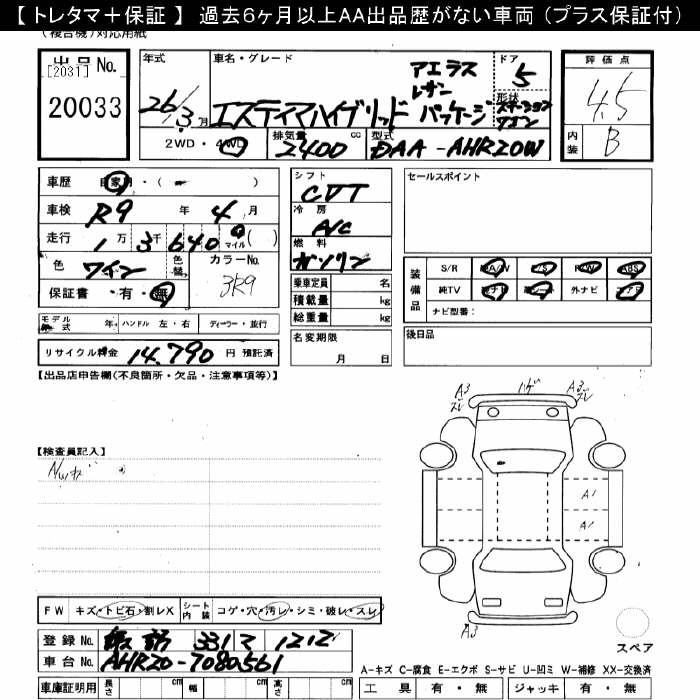 【 トレタマ＋保証 】 過去６ヶ月以上AA出品歴がない車両 (プラス保証付)
(複合機)対応用紙
出品 No.
[2031]
20033
年式
26/3月
車名・グレード
エスティマハイブリッド
アエラス
レザー
パッケージ
ドア
5
形状
ステーション
ワゴン
評価点
4.5
内装
B
2WD・4WD
排気量
cc
2400
型式
DAA-AHR20W
車歴 自家用・( ー )
車検 R9 年 4 月
走行 1万 3千 640 マイル ( )
色 ワイン
色替
カラーNo.
3R9
保証書・有・無
シフト
CVT
冷房
A/C
燃料
ガソリン
乗車定員 名
積載量 kg
総重量 kg
セールスポイント
装備品
S/R PA/W P/S P/W ABS
純TV 純ナビ 革シート 外ナビ エアB
ナビ型番：
モデル年式 年 ハンドル 左・右 ディーラー・並行
リサイクル料金 14,790 円 預託済
名変期限
月 日
後日品
【出品店申告欄(不良箇所・欠品・注意事項等)】
A3
スレ
ハゲ
A3
スレ
【検査員記入】
A1
A1
A3
スペア
FW キズ・トビ石・割レX
シート内装 コゲ・穴・汚レ・シミ・破レ・スレ
登録 No. 331 1212
車台 No. AHR20-7080561
車庫証明用 長さ cm 幅 cm 高さ cm
A−キズ C−腐食 E−エクボ S−サビ U−凹ミ W−補修 XX−交換済
工具 有・無 ジャッキ 有・無